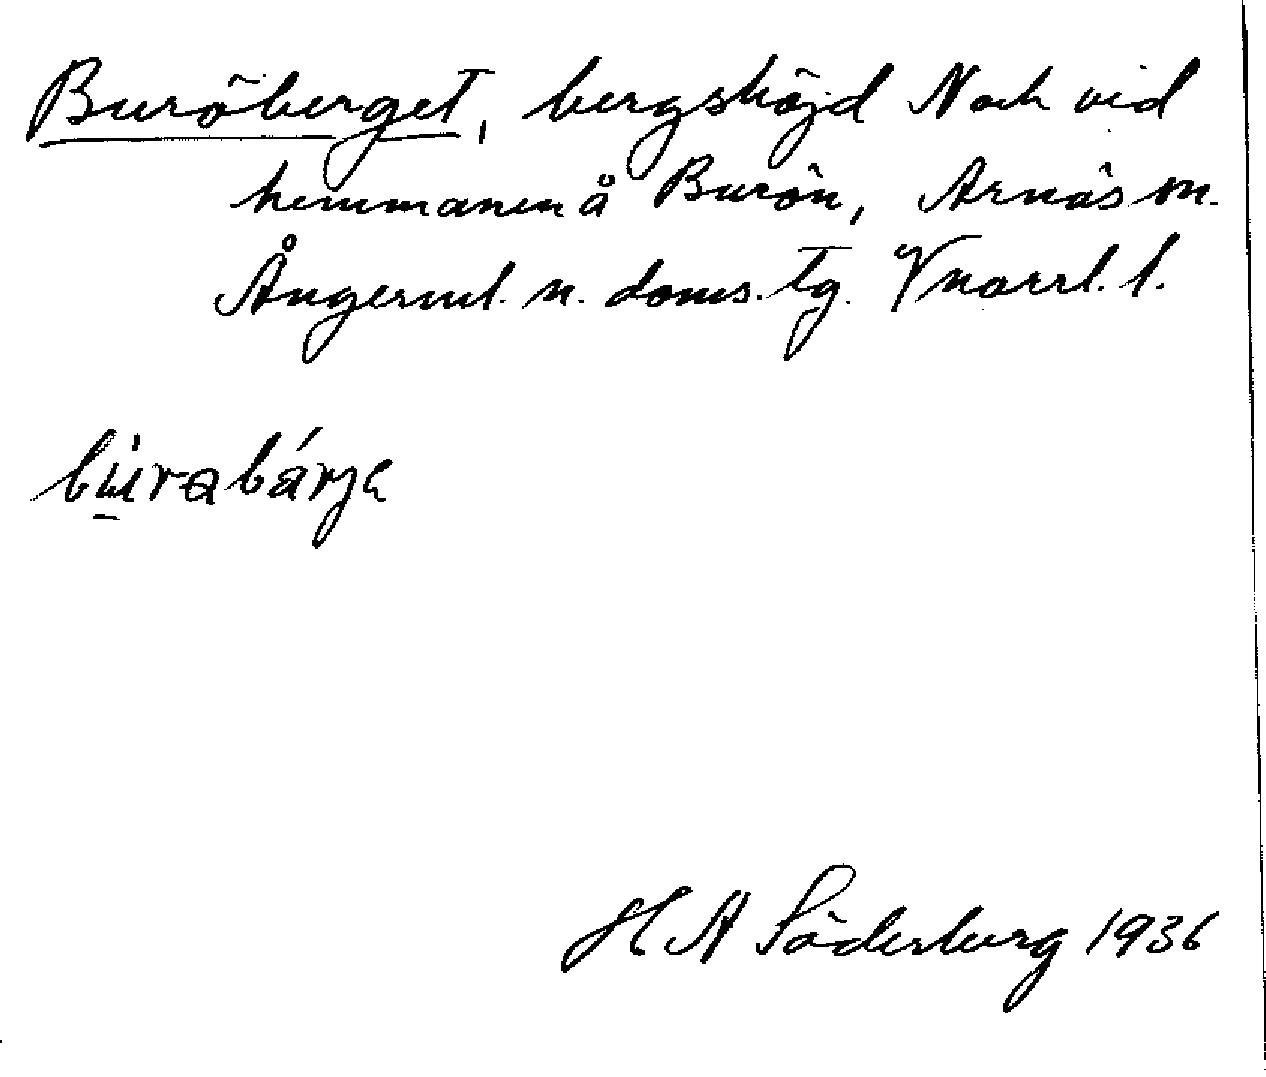 Buröberget, bergshöjd N och vid
hemmanen å Burön, Arnäs sn.
Ångerml. n. doms. tg. Vnorrl. l.
H A Söderberg 1936